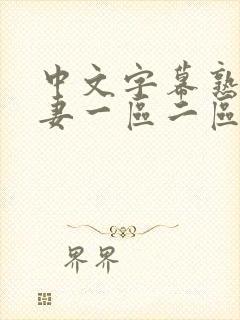 中文字幕熟
妻一區二區
界界